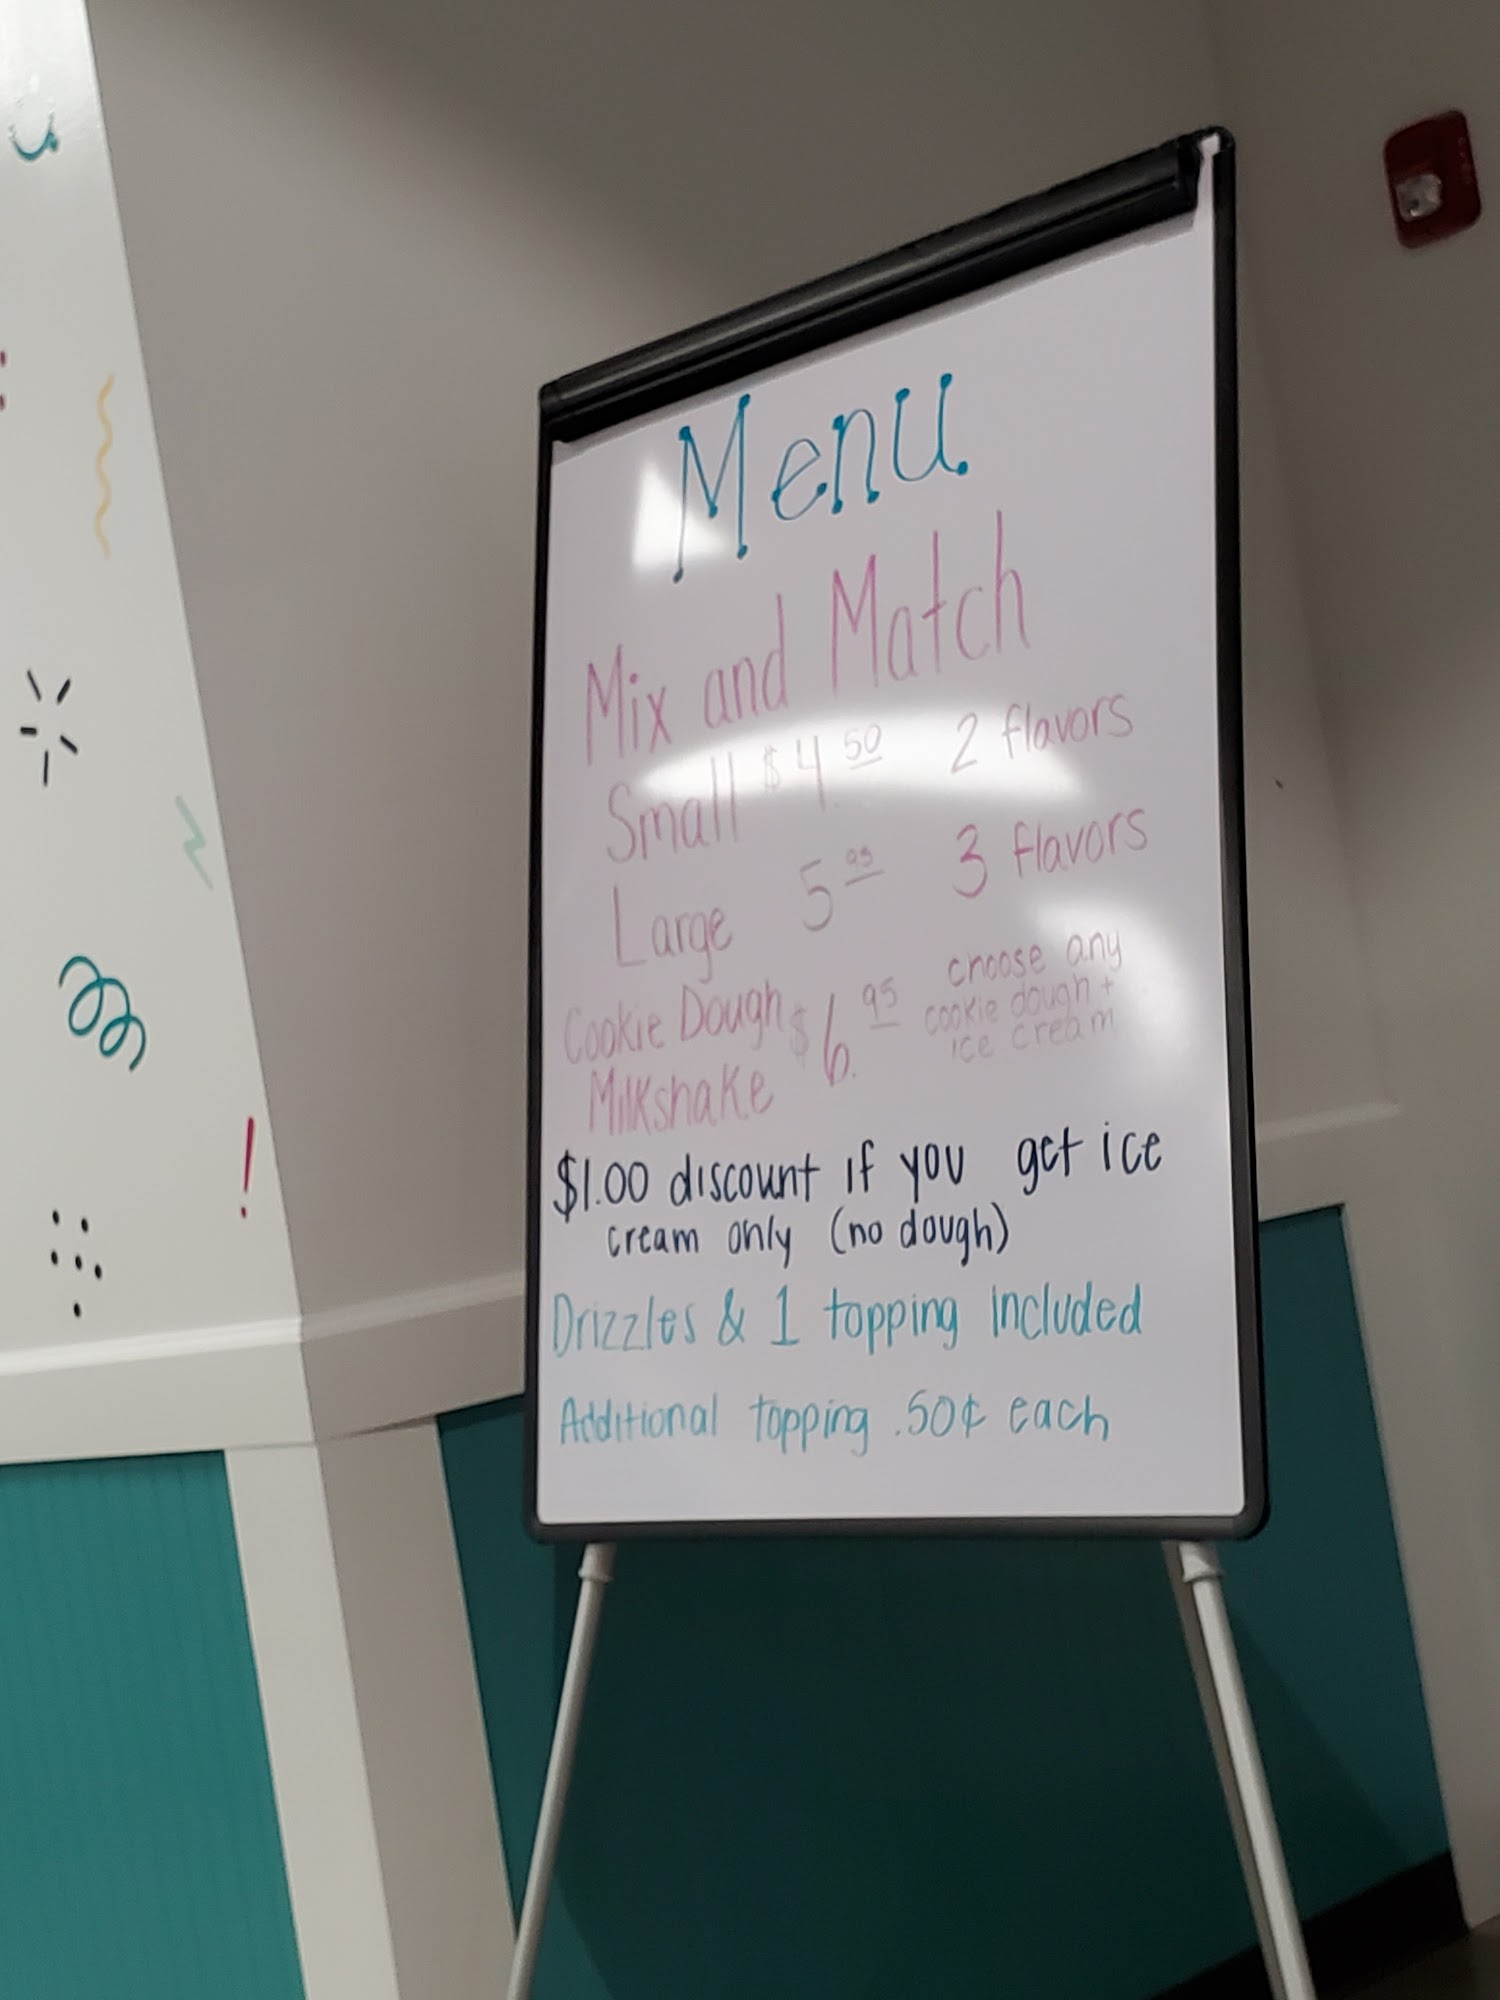 Menu
Mix and Match
Small $4.50 2 flavors
Large 5.95 3 flavors
Cookie Dough Milkshake $6.95 choose any cookie dough + ice cream
$1.00 discount if you get ice
cream only (no dough)
Drizzles & 1 topping included
Additional topping .50¢ each